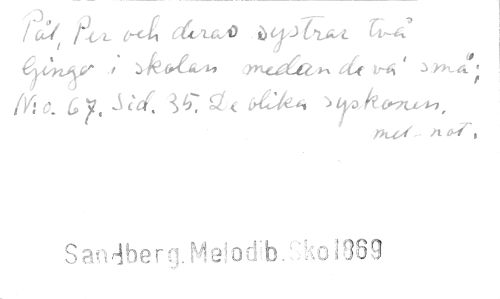 Pål, Per och deras systrar två
Gingo i skolan medan de va' små;
N:o. 67. Sid. 35. De olika syskonen.
mel. not.
Sandberg. Melodib. Sko 1869